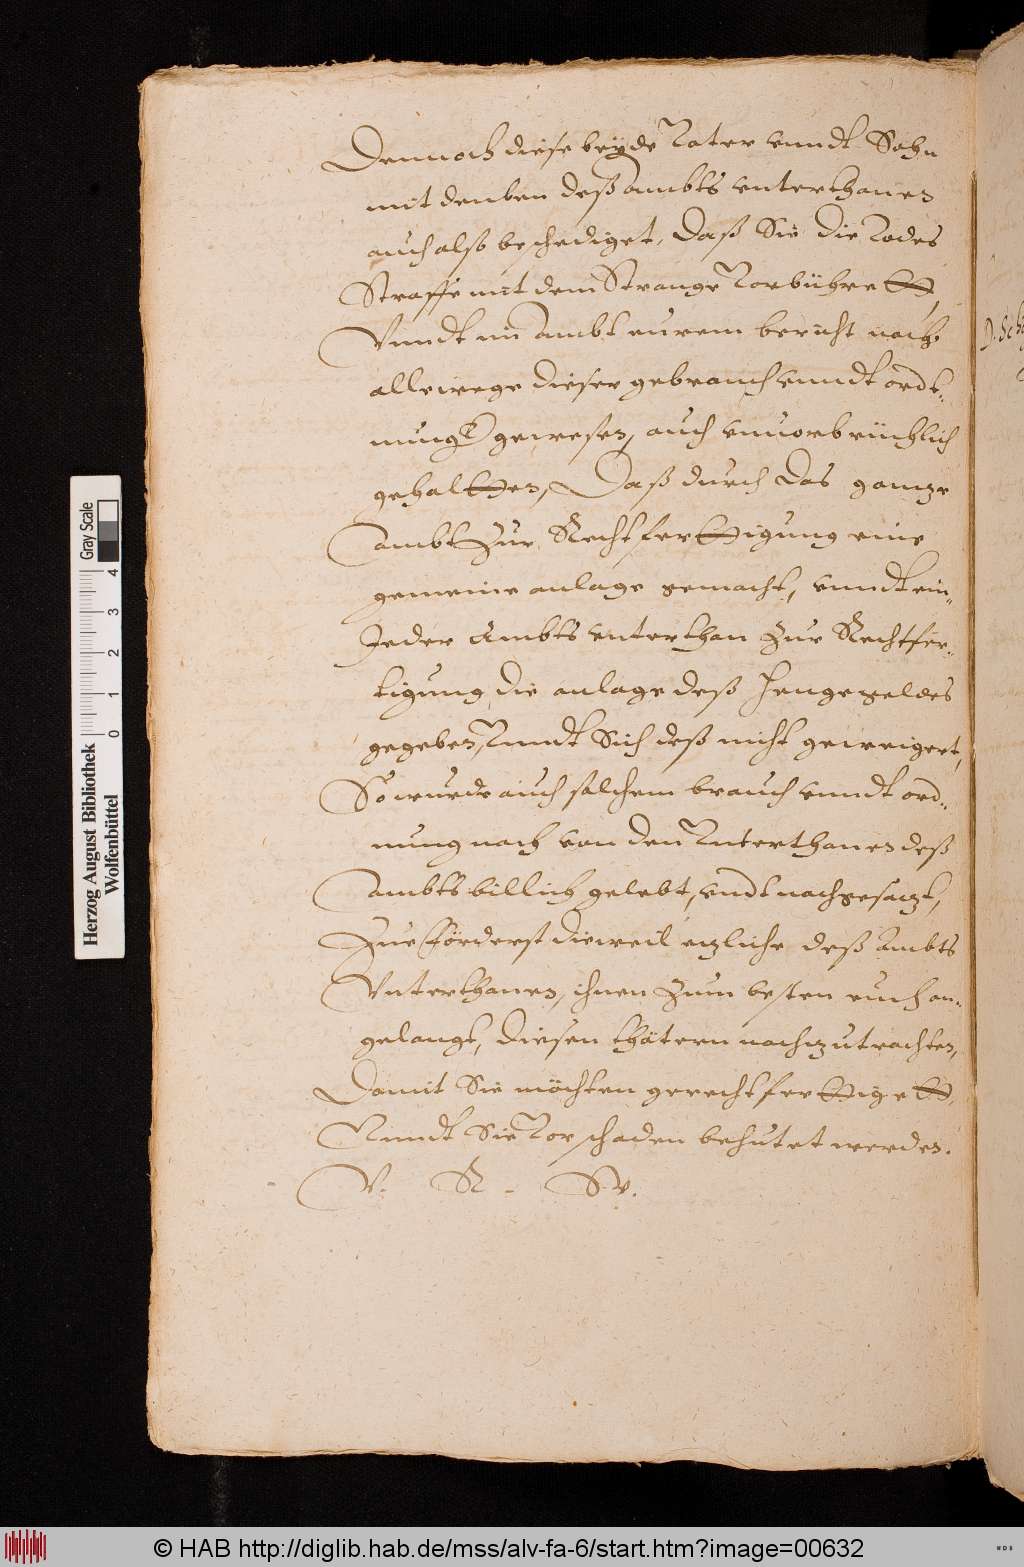 Dennoch diese beÿde Vater vnndt Sohn
mit denben deß ambts vnterthanen
auch also beschediget, Daß Sie die Todes
Straffe mit dem Strange Vorbühret,
Vnndt im Ambt eurem bericht nach
allewege dieser gebrauch vnndt ordt-
nung gewesen, auch vnuorbrüchlich
gehaltten, Daß durch das gantze
Ambt zur Rechtferttigung eine
gemeine anlage gemacht, vnndt ein
Jeder Ambts vnterthan zur Rechtfer-
tigung die anlage deß hengegeldes
gegeben, Vnndt Sich deß nicht geweigert,
So wurde auch solchem brauch vnndt ord-
nung nach von den Vnterthanen deß
Ambts billich gelebt, vndt nachgesatzt,
Zue förderst dieweil etzliche deß Ambts
Vnterthanen, ihnen zum besten euch an-
gelangt, diesen thätern nachzutrachten,
Damit Sie möchten gerechtferttiget,
Vnndt Sie Vor schaden behutet werden.
V. R. W.
D. Sch
Herzog August Bibliothek
Wolfenbüttel
0 1 2 3 4
Gray Scale
© HAB http://diglib.hab.de/mss/alv-fa-6/start.htm?image=00632
WDB